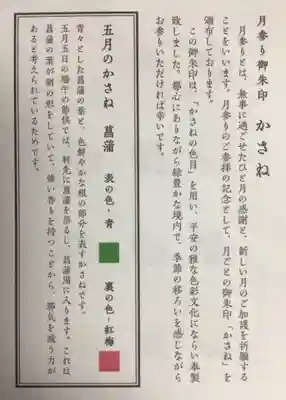 月参り御朱印 かさね
月参りとは、無事に過ごせたひと月の感謝と、新しい月のご加護を祈願する
ことをいいます。月参りのご参拝の記念として、月ごとの御朱印「かさね」を
頒布しております。
この御朱印は、「かさねの色目」を用い、平安の雅な色彩文化にならい奉製
致しました。都心にありながら緑豊かな境内で、季節の移ろいを感じながら
お参りいただければ幸いです。
五月のかさね 菖蒲 表の色-青 裏の色-紅梅
青々とした菖蒲の葉と、色鮮やかな根の部分を表すかさねです。
五月五日の端午の節供では、軒先に菖蒲を吊るし、菖蒲湯に入ります。これは
菖蒲の葉が剣の形をしていて、強い香りを持つことから、邪気を祓う力が
あると考えられているためです。